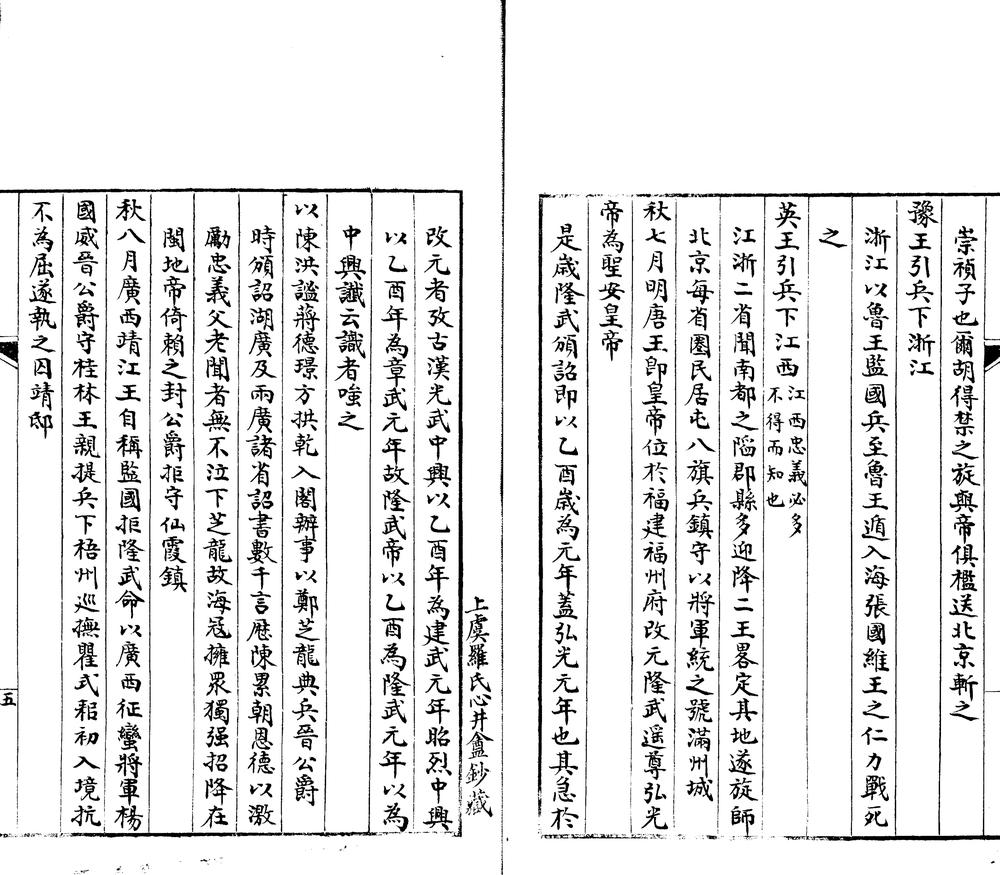 崇禎子也爾胡得禁之旋與帝俱檻送北京斬之
豫王引兵下浙江
浙江以魯王監國兵至魯王遁入海張國維王之仁力戰死
之
英王引兵下江西江西忠義必多
不得而知也
江浙二省聞南都之陷郡縣多迎降二王畧定其地遂旋師
北京每省圏民居屯八旗兵鎮守以將軍統之號滿州城
秋七月明唐王卽皇帝位於福建福州府改元隆武遥尊弘光
帝為聖安皇帝
是歲隆武頒詔即以乙酉歲為元年蓋弘光元年也其急於
上虞羅氏心井盦鈔藏
改元者攷古漢光武中興以乙酉年為建武元年昭烈中興
以乙酉年為章武元年故隆武帝以乙酉為隆武元年以為
中興讖云識者嗤之
以陳洪謐蔣德璟方拱乾入閣辦事以鄭芝龍典兵晉公爵
時頒詔湖廣及兩廣諸省詔書數千言歴陳累朝恩德以激
勵忠義父老聞者無不泣下芝龍故海冦擁眾獨强招降在
閩地帝倚賴之封公爵拒守仙霞鎮
秋八月廣西靖江王自稱監國拒隆武命以廣西征蠻將軍楊
國威晉公爵守桂林王親提兵下梧州巡撫瞿式耜初入境抗
不為屈遂執之囚靖邸
五